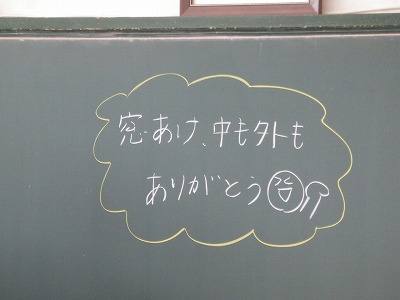 窓あけ、中も外も
ありがとう